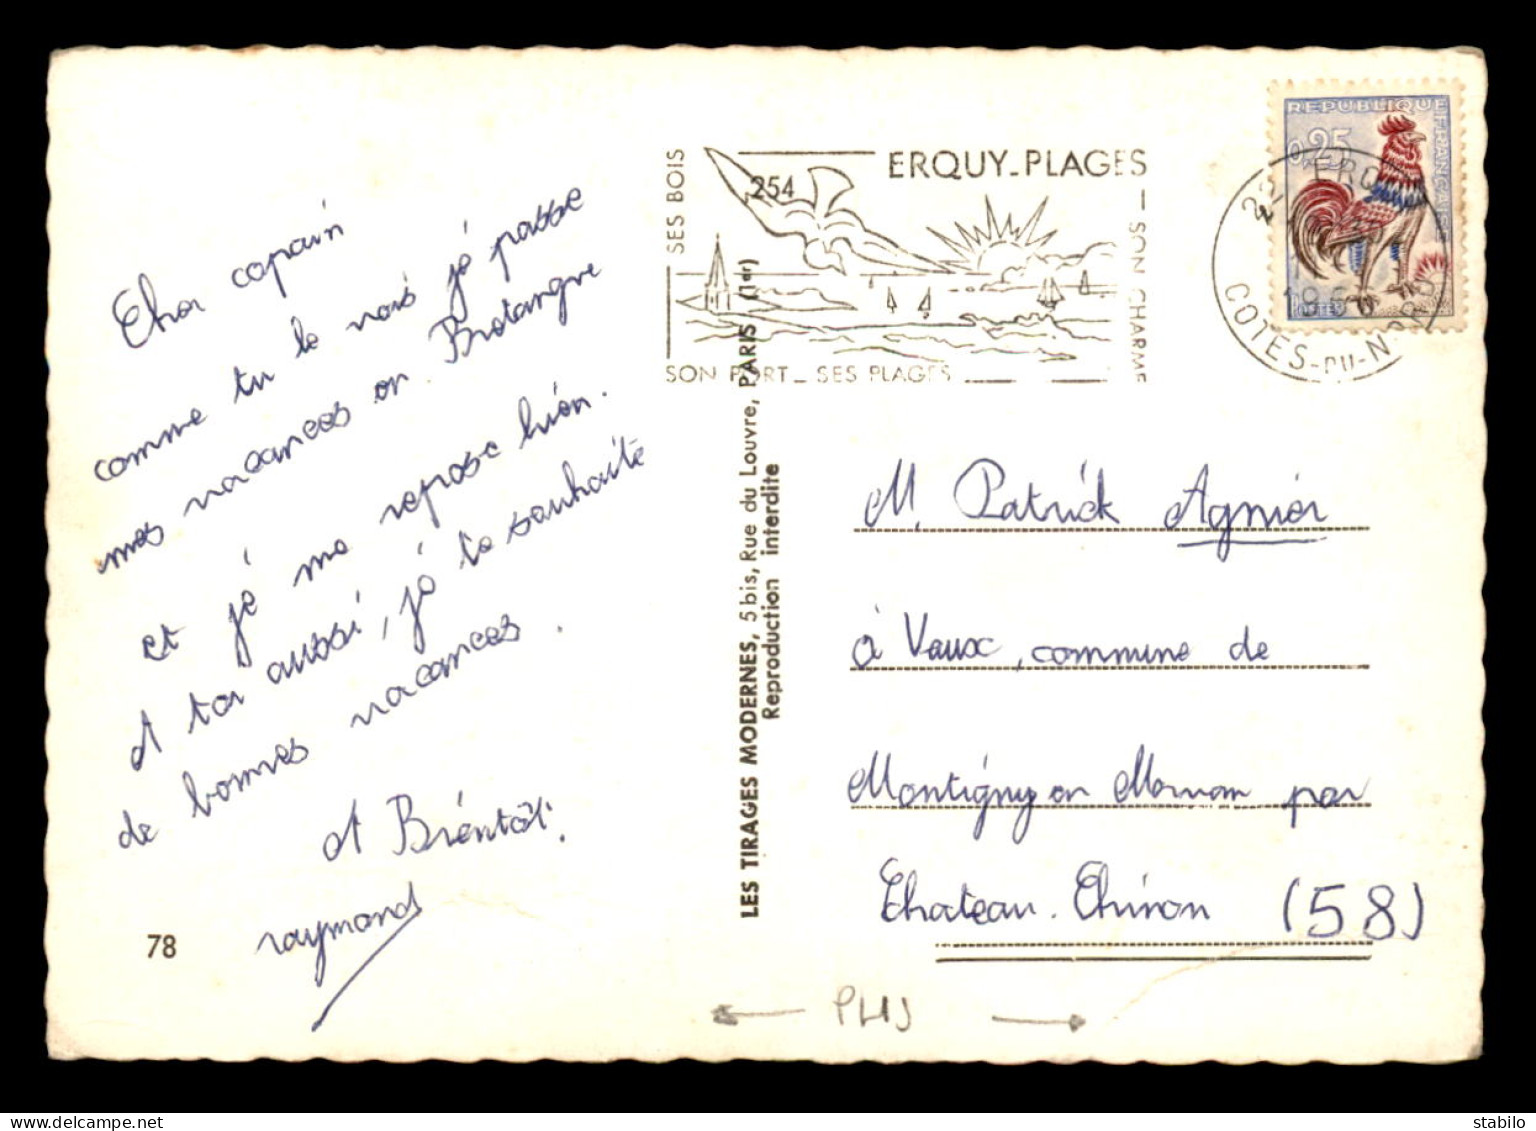 Cher copain
comme tu le vois je passe
mes vacances en Bretagne
et je me repose bien.
A toi aussi, je te souhaite
de bonnes vacances.
A Bientôt.
raymond
78
LES TIRAGES MODERNES, 5 bis, Rue du Louvre, PARIS (1er)
Reproduction interdite
254
ERQUY-PLAGES
SES BOIS
SON CHARME
SON PORT - SES PLAGES
REPUBLIQUE FRANÇAISE
0,25
22 ERQUY
COTES-DU-NORD
M. Patrick Agnier
à Vaux, commune de
Montigny en Morvan par
Chateau. Chinon (58)
PLIS
stabilo